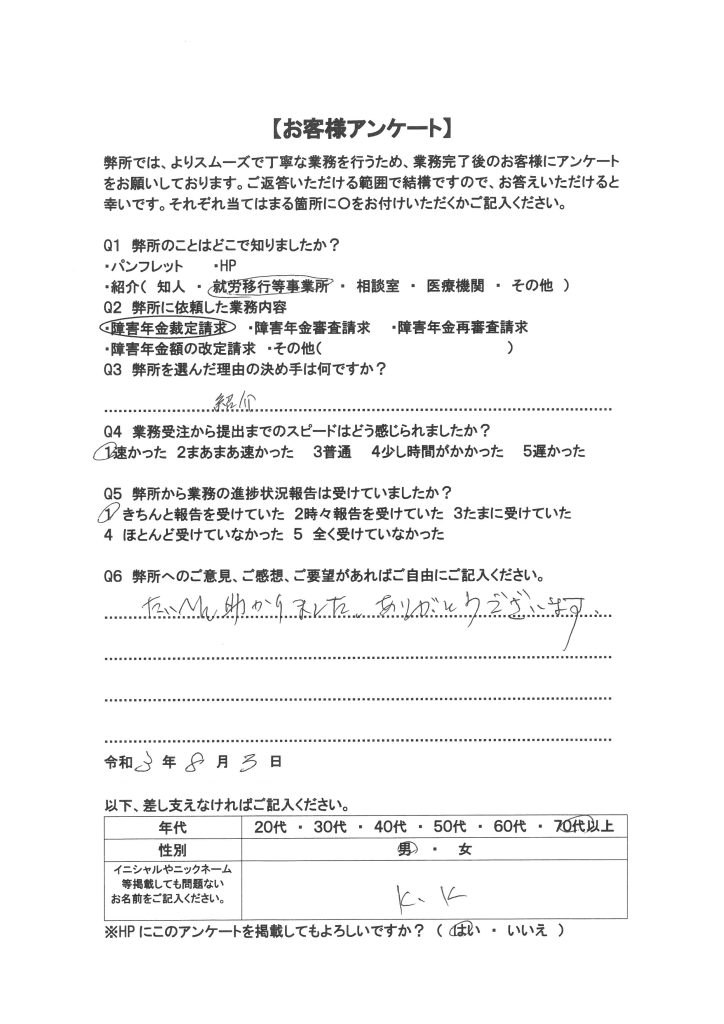 【お客様アンケート】
弊所では、よりスムーズで丁寧な業務を行うため、業務完了後のお客様にアンケート
をお願いしております。ご返答いただける範囲で結構ですので、お答えいただけると
幸いです。それぞれ当てはまる箇所に〇をお付けいただくかご記入ください。
Q1 弊所のことはどこで知りましたか？
・パンフレット ・HP
・紹介（ 知人 ・ 就労移行等事業所 ・ 相談室 ・ 医療機関 ・ その他 ）
Q2 弊所に依頼した業務内容
・障害年金裁定請求 ・障害年金審査請求 ・障害年金再審査請求
・障害年金額の改定請求 ・その他（ ）
Q3 弊所を選んだ理由の決め手は何ですか？
紹介
Q4 業務受注から提出までのスピードはどう感じられましたか？
1速かった 2まあまあ速かった 3普通 4少し時間がかかった 5遅かった
Q5 弊所から業務の進捗状況報告は受けていましたか？
1 きちんと報告を受けていた 2時々報告を受けていた 3たまに受けていた
4 ほとんど受けていなかった 5 全く受けていなかった
Q6 弊所へのご意見、ご感想、ご要望があればご自由にご記入ください。
たいへん助かりました。ありがとうございます。
令和3年 8月 3日
以下、差し支えなければご記入ください。
年代 20代 ・ 30代 ・ 40代 ・ 50代 ・ 60代 ・ 70代以上
性別 男 ・ 女
イニシャルやニックネーム
等掲載しても問題ない
お名前をご記入ください。
K.K
※HPにこのアンケートを掲載してもよろしいですか？（ はい ・ いいえ ）